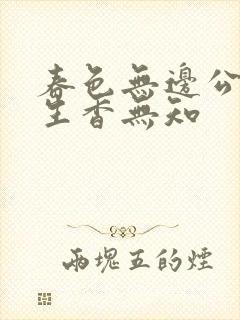 春色無邊公
生香無知
兩塊五的煙